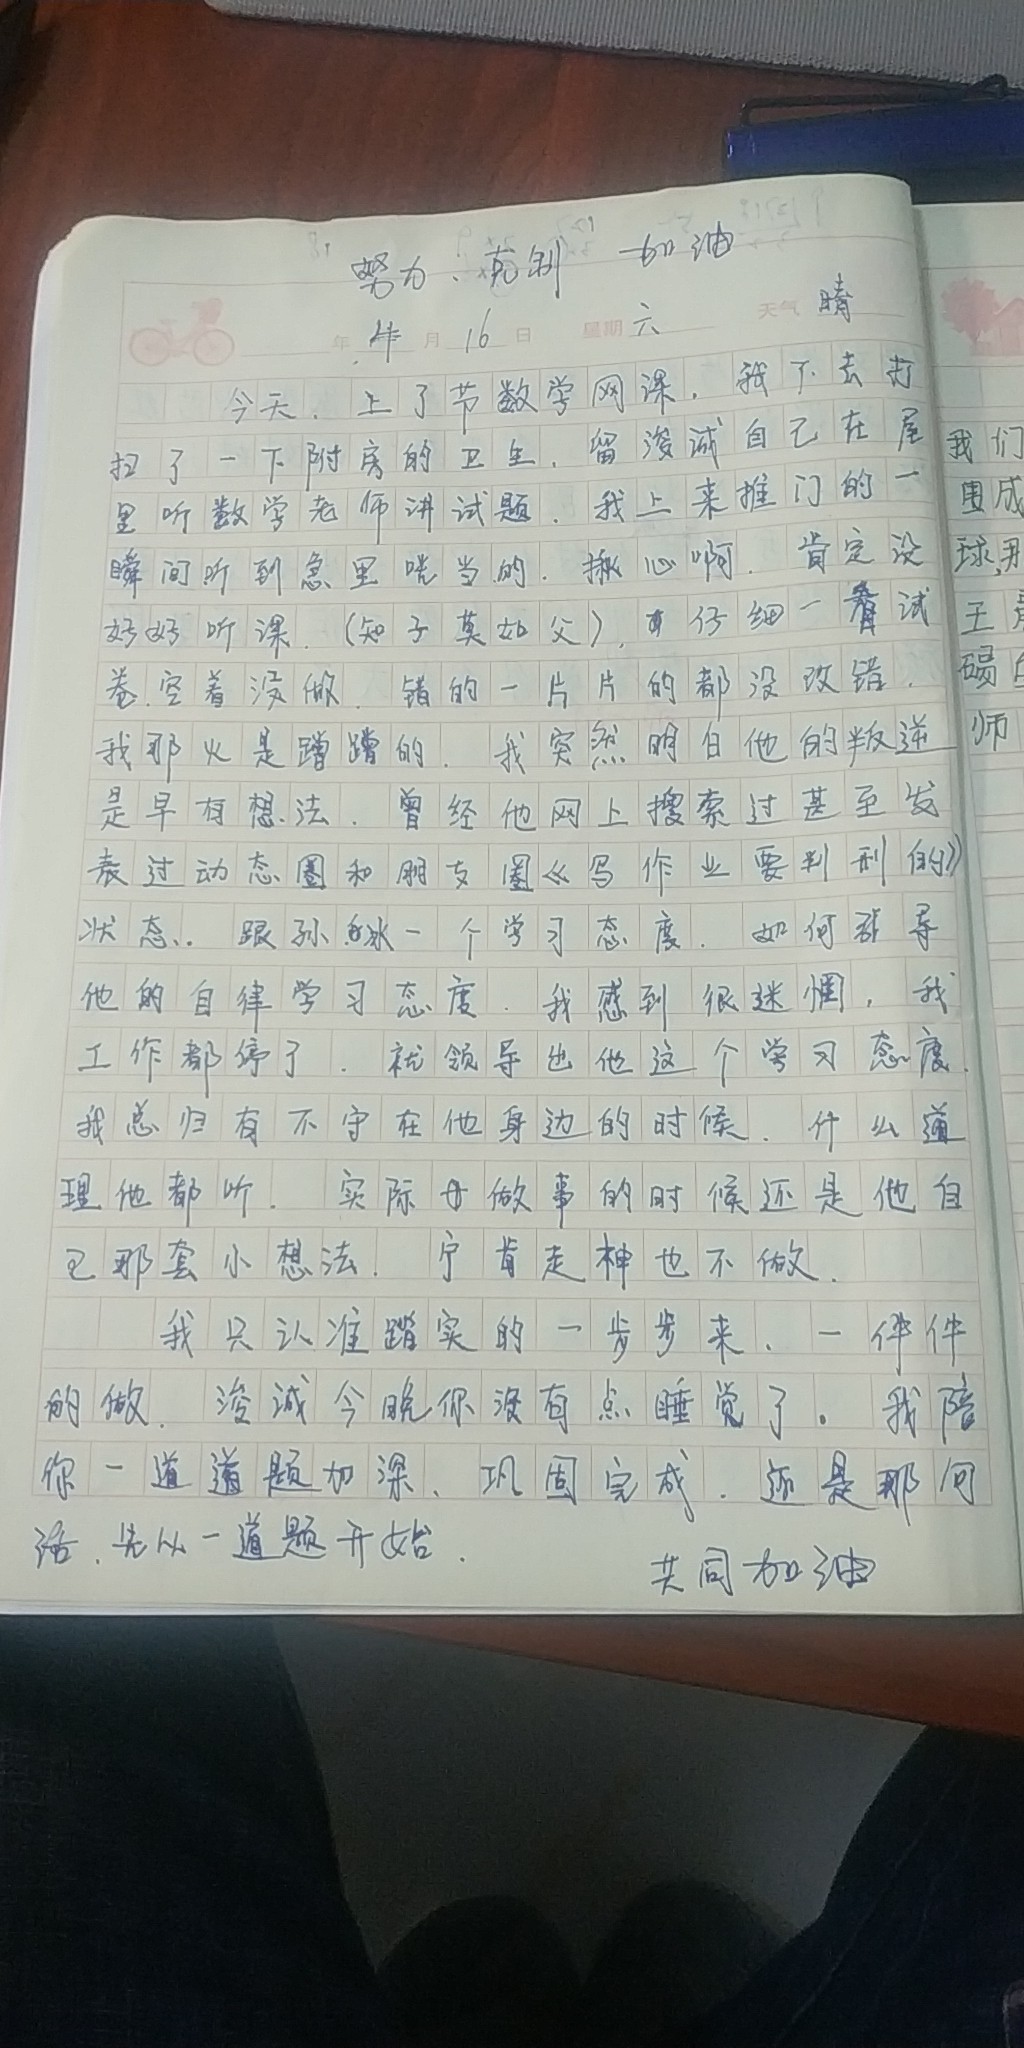 努力、克制 加油
年 4 月 16 日 星期 六 天气 晴
今天，上了节数学网课，我下去打
扫了一下附房的卫生，留浚诚自己在屋
里听数学老师讲试题，我上来推门的一
瞬间听到急里咣当的，揪心啊，肯定没
好好听课，（知子莫如父），仔细一看试
卷，空着没做，错的一片片的都没改错，
我那火是蹭蹭的，我突然明白他的叛逆
是早有想法，曾经他网上搜索过甚至发
表过动态圈和朋友圈《写作业要判刑的》
状态.. 跟孙 一个学习态度，如何 导
他的自律学习态度，我感到很迷惘，我
工作都停了，就领导他这个学习态度，
我总归有不守在他身边的时候，什么道
理他都听，实际做事的时候还是他自
己那套小想法，宁肯走神也不做，
我只认准踏实的一步步来，一件件
的做，浚诚今晚你没有点睡觉了。我陪
你一道道题加深、巩固完成，还是那句
话，先从一道题开始，
共同加油
我们
围成
球,
王
师